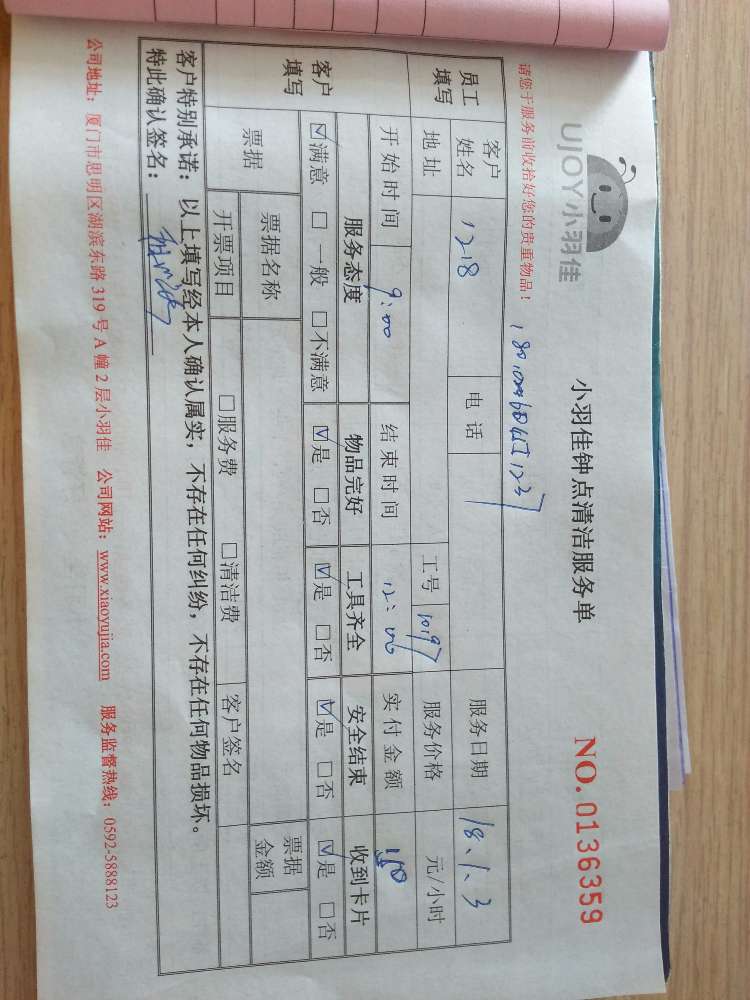 UJOY小羽佳
小羽佳钟点清洁服务单
NO. 0136359
请您于服务前收拾好您的贵重物品！
员工填写
客户姓名 1218 电话 服务日期 18.1.3
地址 工号 10197 服务价格 元/小时
客户填写
开始时间 9:00 结束时间 12:00 实付金额
服务态度 物品完好 工具齐全 安全结束 收到卡片
☑满意 □一般 □不满意 ☑是 □否 ☑是 □否 ☑是 □否 ☑是 □否
票据 票据名称 票据金额
开票项目 □服务费 □清洁费 客户签名
客户特别承诺：以上填写经本人确认属实，不存在任何纠纷，不存在任何物品损坏。
特此确认签名：
公司地址：厦门市思明区湖滨东路319号A幢2层小羽佳 公司网站：www.xiaoyujia.com 服务监督热线：0592-5888123